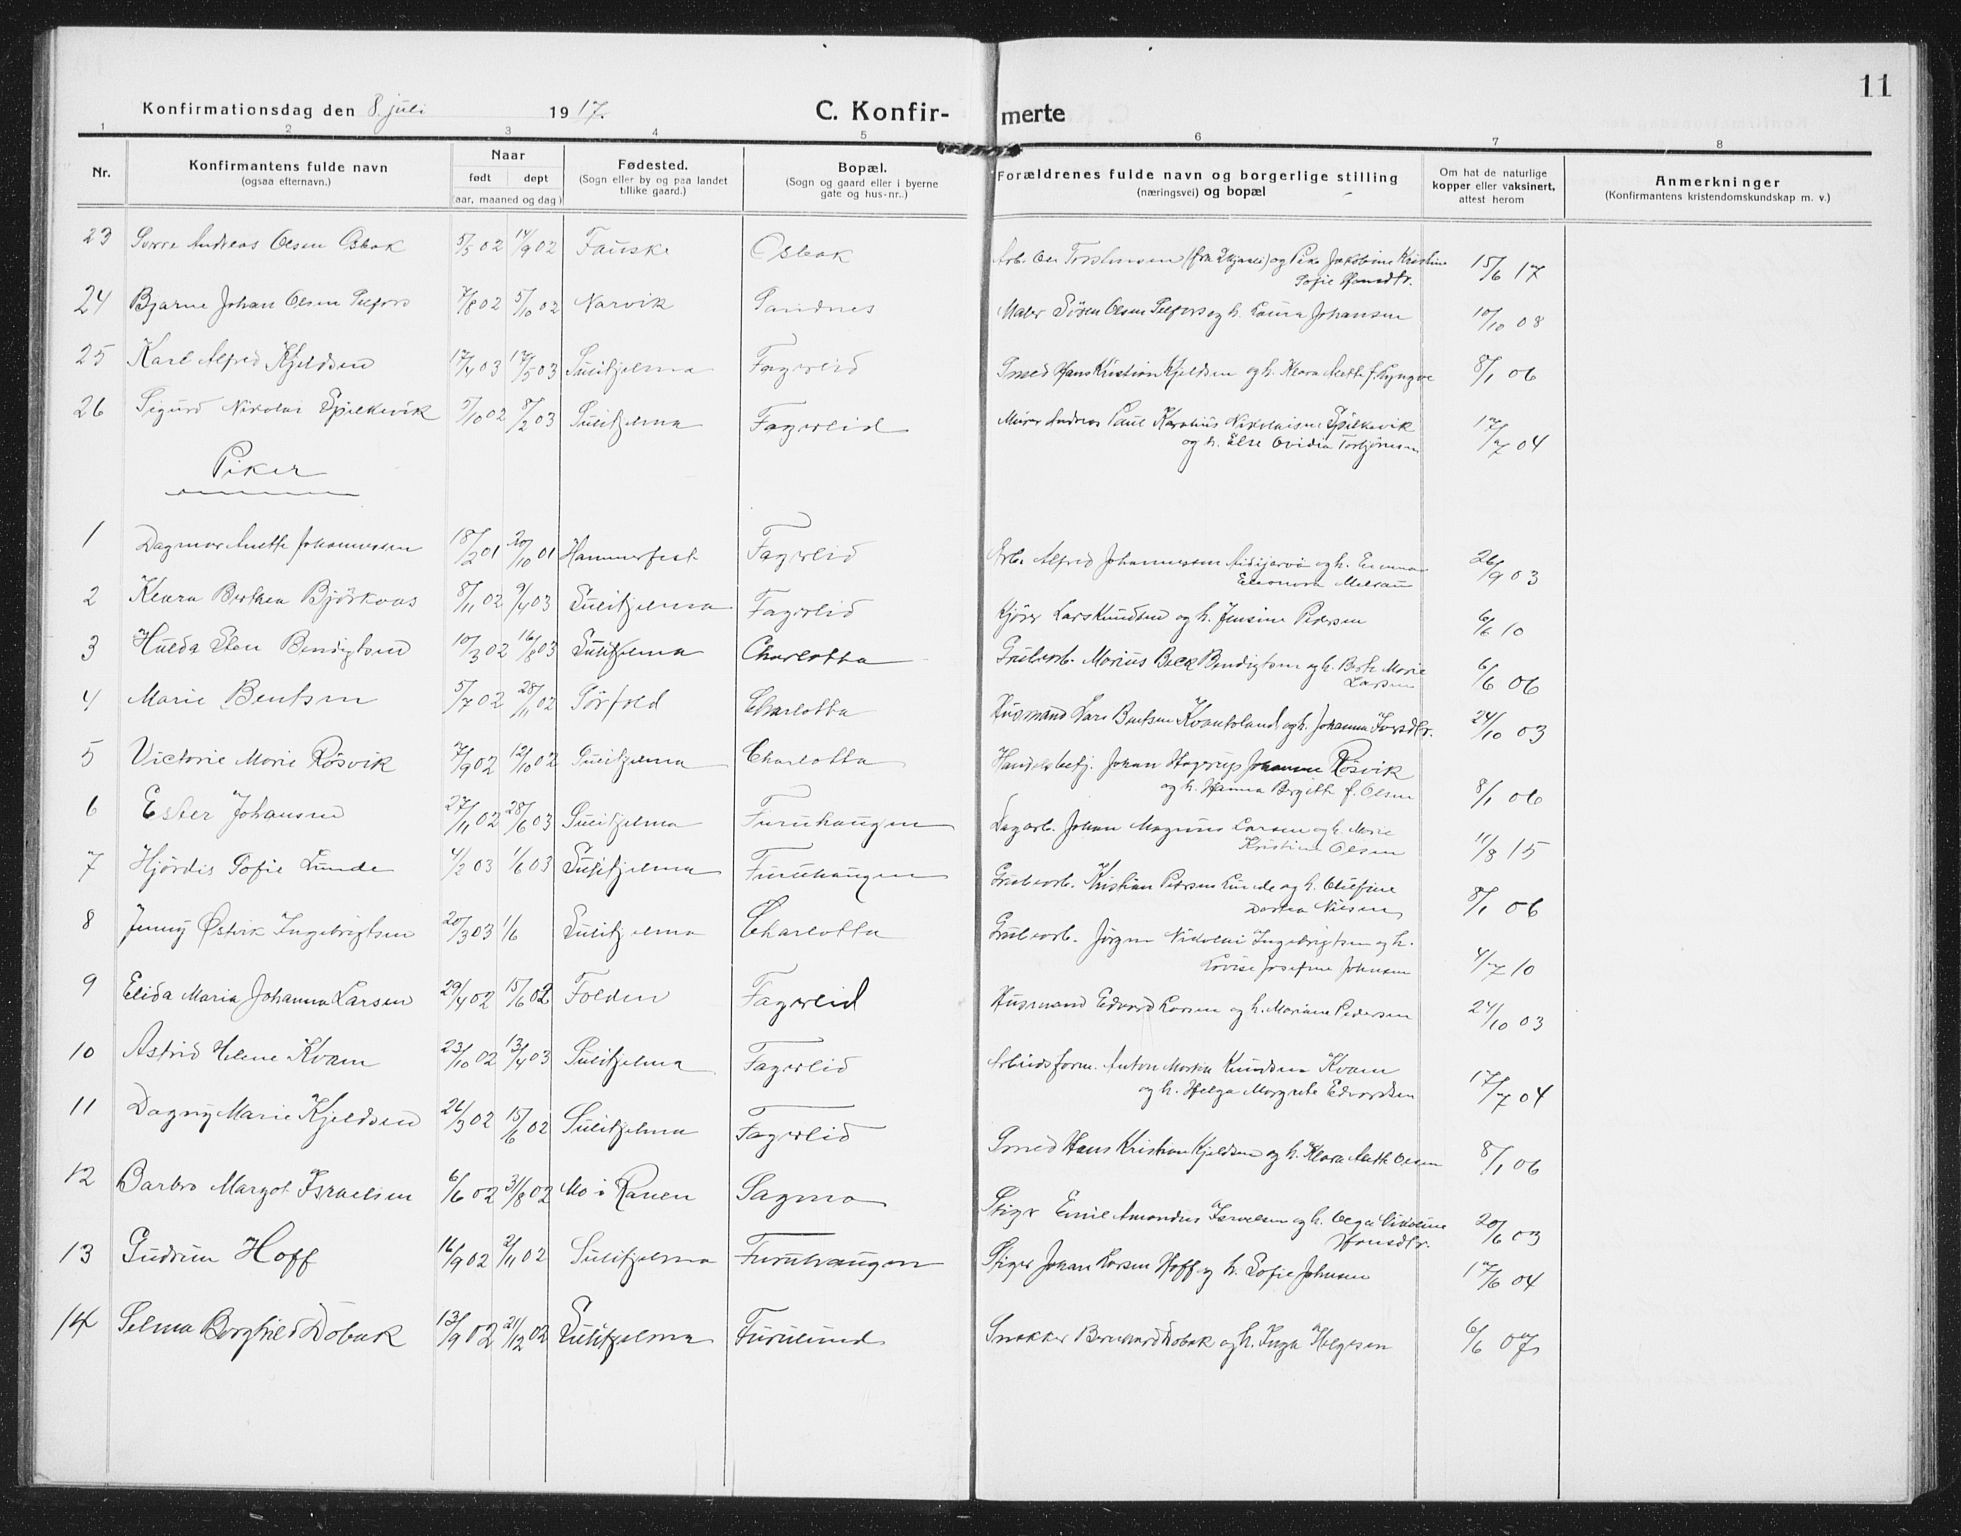 11
Konfirmationsdag den 8. juli 1917.
C. Konfir- merte
1 2 3 4 5 6 7 8
Nr.
Konfirmantens fulde navn
(ogsaa efternavn.)
Naar
født dept
(aar, maaned og dag)
Fødested.
(Sogn eller by og paa landet
tillike gaard.)
Bopæl.
(Sogn og gaard eller i byerne
gate og hus-nr.)
Forældrenes fulde navn og borgerlige stilling
(næringsvei) og bopæl
Om hat de naturlige
kopper eller vaksinert,
attest herom
Anmerkninger
(Konfirmantens kristendomskundskap m. v.)
23 Andreas Olsen Osbak 5/5 02 14/9 02 Fauske Osbak Arb. Ole og Pike Jakobine Kristine 15/6 17
Sofie Hansdtr.
24 Bjarne Johan Olsen 7/8 02 5/10 03 Narvik Sandnes Maler Søren Olsen og h. Laura Johansen 10/10 08
25 Karl Alfred Kjeldsen 17/4 03 17/5 03 Sulitjelma Fagerlid Smed Hans Kristian Kjeldsen og h. Klara Anette f. Lyngve 8/1 06
26 Sigurd Nikolai Spilkevik 5/10 02 8/2 03 Sulitjelma Fagerlid Murer Andreas Paul Karolius Nikolaisen Spilkevik 17/7 04
og h. Else Ovidia Torbjørnsen
Piker
1 Dagmar Anette Johannessen 18/2 01 20/10 01 Hammerfest Fagerlid Arb. Alfred Johannessen og h. Emma 26/9 03
Eleonora
2 Klara Berthea Bjørkaas 8/11 02 9/4 03 Sulitjelma Fagerlid Kjører Lars Knudsen og h. Jensine Pedersen 6/6 10
3 Hulda Sten Bendigtsen 10/3 02 16/8 03 Sulitjelma Charlotta Grubearb. Marius Beck Bendigtsen og h. Berte Marie 6/6 06
Larsen
4 Marie Bentsen 5/7 02 28/11 02 Sørfold Charlotta Husmand Lars Bentsen Kvantoland og h. Johanna Iversdtr. 24/10 03
5 Victorie Marie Røsvik 7/9 02 12/10 02 Sulitjelma Charlotta Handelsbetj. Johan Hagerup Johansen Røsvik
og h. Hanna Bergitte f. Olsen 8/1 06
6 Ester Johansen 27/11 02 28/6 03 Sulitjelma Furuhaugen Dagarb. Johan Magnus Larsen og h. Marie
Kristine Olsen 11/8 15
7 Hjørdis Sofie Lunde 4/2 03 1/6 03 Sulitjelma Furuhaugen Grubearb. Kristian Pedersen Lunde og h. Olufine
Dortea Nilsen 8/1 06
8 Jenny Østvik Ingebrigtsen 20/3 03 1/6 Sulitjelma Charlotta Grubearb. Jørgen Nikolai Ingebrigtsen og h.
Lovise Josefine Johnsen 4/7 10
9 Elida Maria Johanna Larsen 29/4 02 15/6 02 Folden Fagerlid Husmand Edvard Larsen og h. Mariane Pedersen 24/10 03
10 Astrid Helene Kvam 23/10 02 13/4 03 Sulitjelma Fagerlid Arbeidsform. Anton Martin Knudsen Kvam
og h. Helga Margrete Edvardsen 17/7 04
11 Dagny Marie Kjeldsen 26/3 02 15/6 02 Sulitjelma Fagerlid Smed Hans Kristian Kjeldsen og h. Klara Anette Olsen 8/1 06
12 Barbro Margot Israelsen 6/6 02 31/8 02 Mo i Ranen Sagmo Stiger Emil Amandus Israelsen og h. Olga Nikoline 20/6 03
Hansdtr.
13 Gudrun Hoff 16/9 02 2/11 02 Sulitjelma Furuhaugen Stiger Johan Larsen Hoff og h. Sofie Johnsen 17/6 04
14 Selma Borghild Dobak 13/9 02 21/12 02 Sulitjelma Furulund Snekker Bernhard Dobak og h. Inga Helgesen 6/6 07